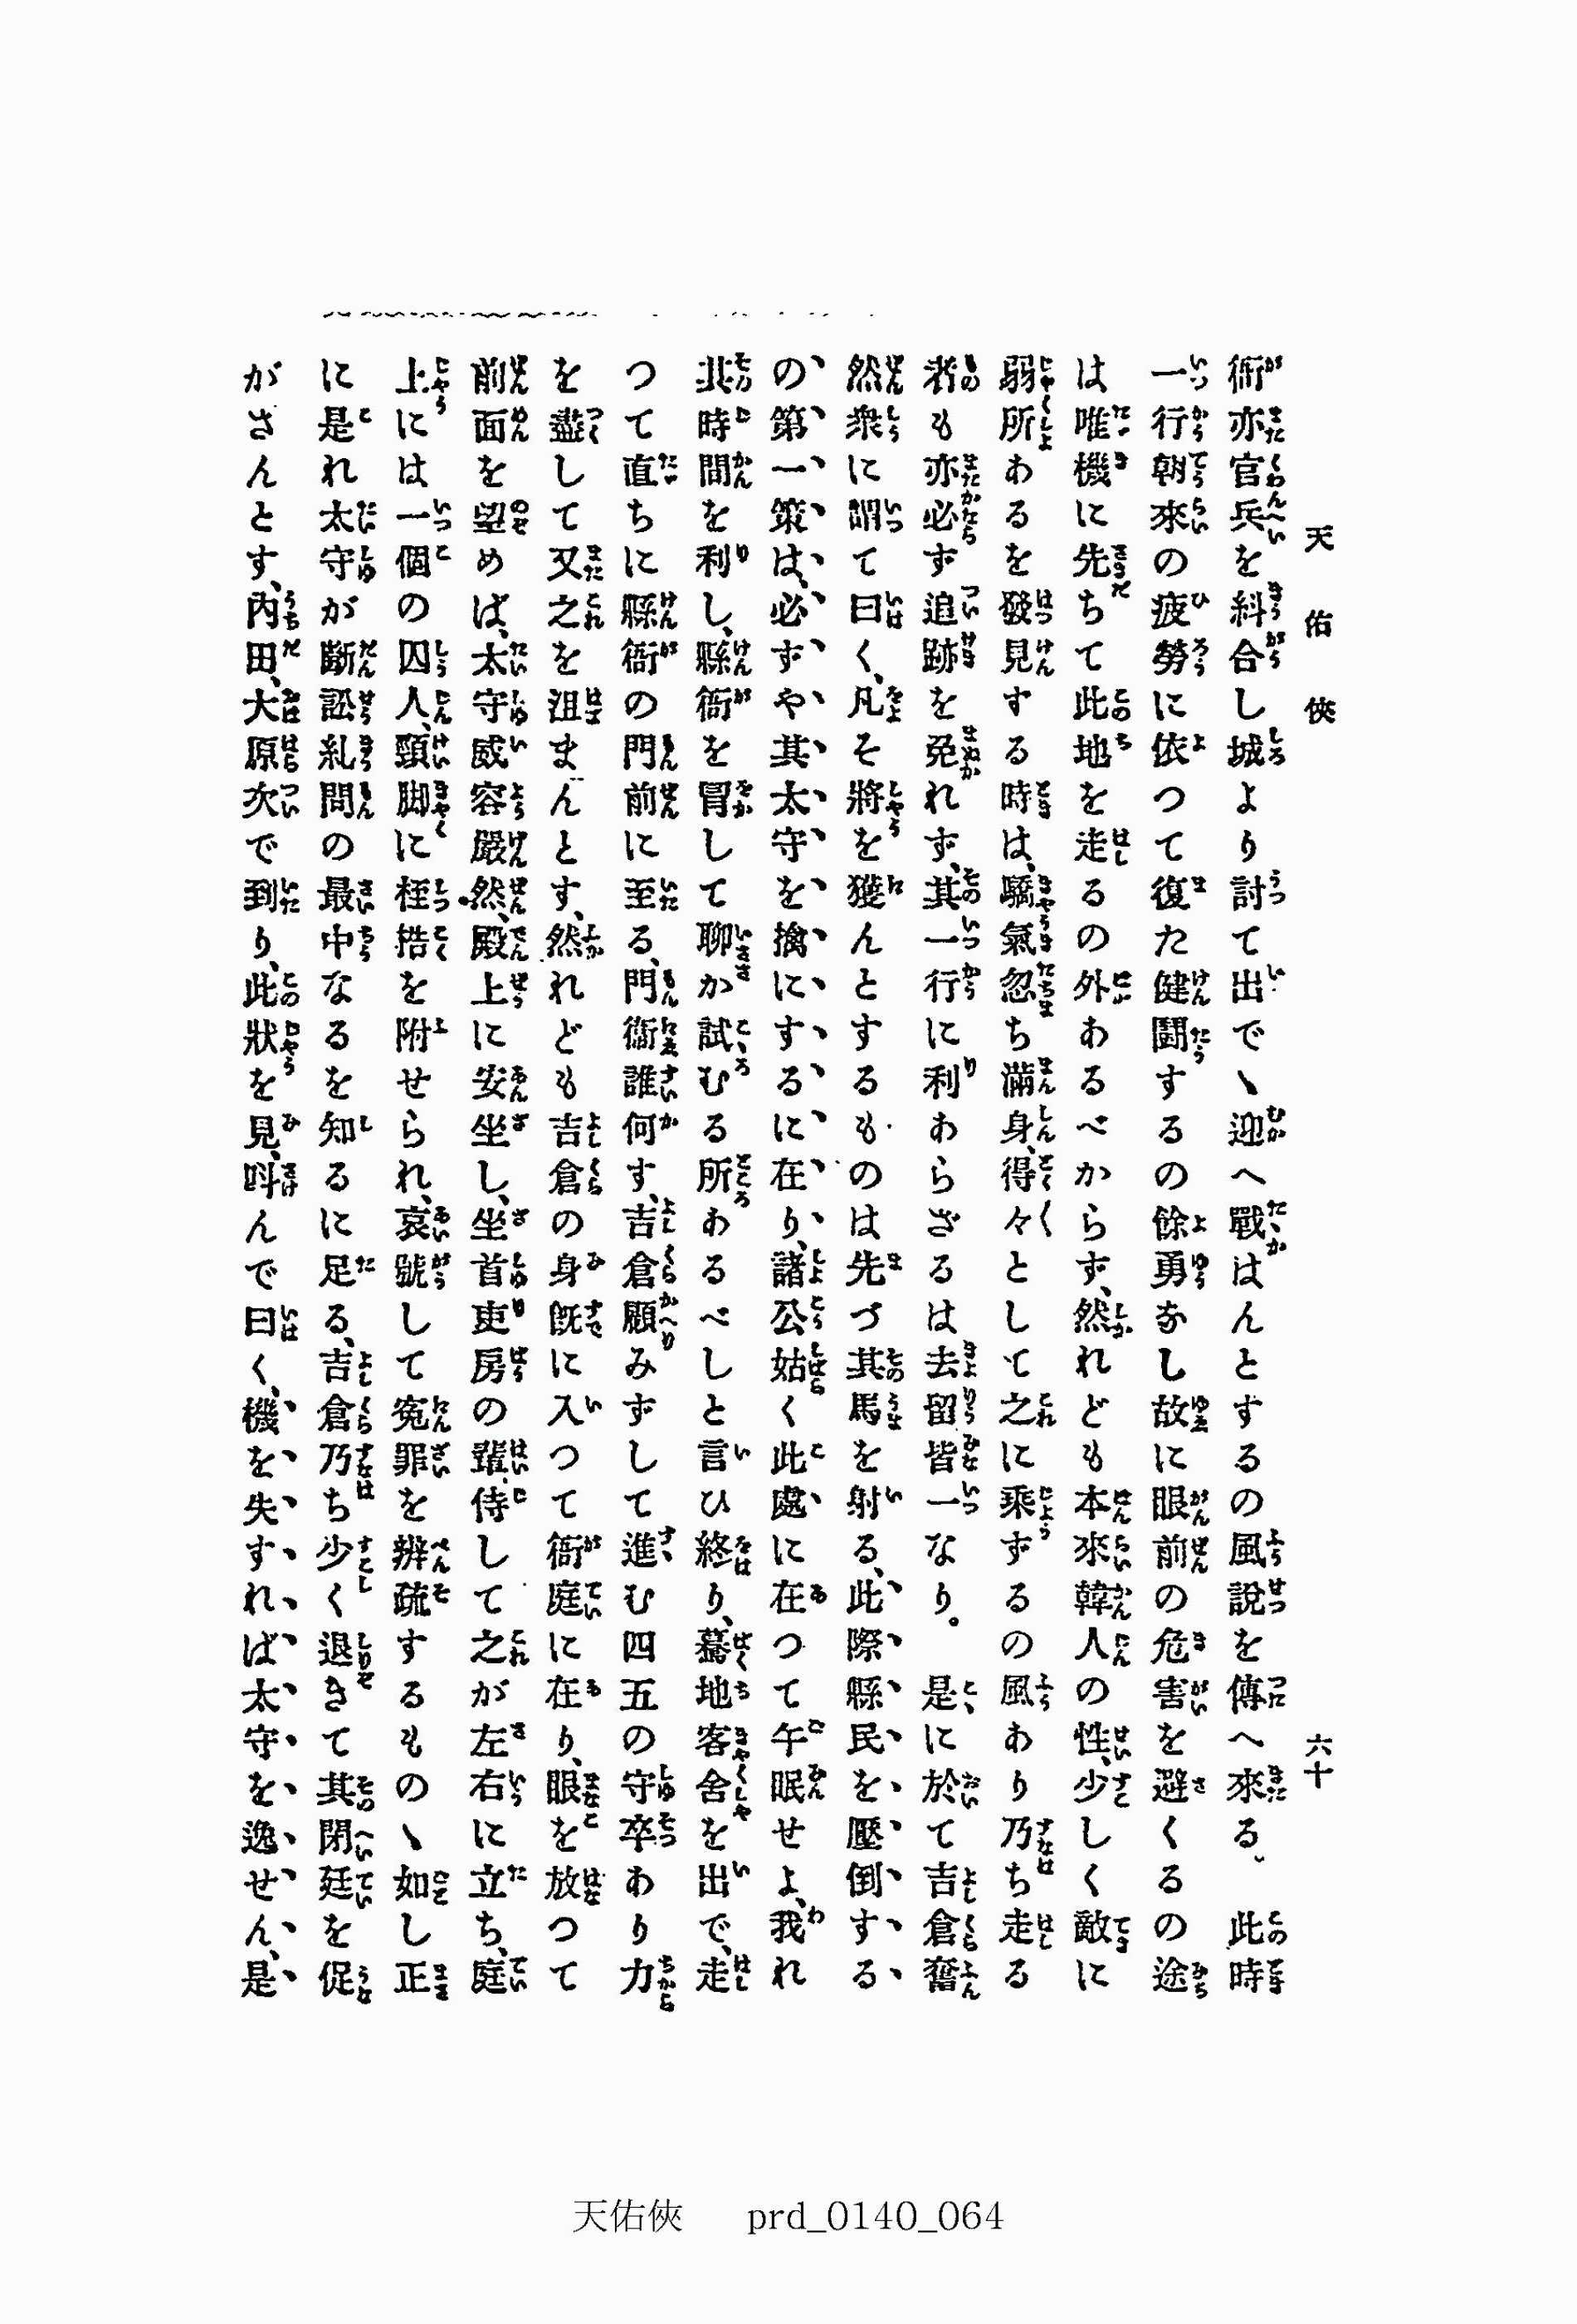 天佑俠
六十
衙亦官兵を糾合し城より討て出で丶迎へ戰はんとするの風說を傳へ來る。此時
一行朝來の疲勞に依つて復た健鬪するの餘勇なし故に眼前の危害を避くるの途
は唯機に先ちて此地を走るの外あるべからず、然れども本來韓人の性、少しく敵に
弱所あるを發見する時は、驕氣忽ち滿身、得々として之に乘ずるの風あり乃ち走る
者も亦必ず追跡を免れず、其一行に利あらざるは去留皆一なり。是に於て吉倉奮
然衆に謂て曰く、凡そ將を獲んとするものは先づ其馬を射る、此際縣民を壓倒する
の第一策は、必ずや其太守を擒にするに在り、諸公姑く此處に在つて午眠せよ、我れ
其時間を利し、縣衙を冒して聊か試むる所あるべしと言ひ終り、驀地客舍を出で、走
つて直ちに縣衙の門前に至る、門衞誰何す、吉倉顧みずして進む四五の守卒あり力
を盡して又之を沮まんとす、然れども吉倉の身旣に入つて衙庭に在り、眼を放つて
前面を望めば、太守威容嚴然、殿上に安坐し、坐首吏房の輩侍して之が左右に立ち、庭
上には一個の囚人、頸脚に桎梏を附せられ、哀號して寃罪を辨疏するもの丶如し正
に是れ太守が斷訟糺問の最中なるを知るに足る、吉倉乃ち少く退きて其閉廷を促
がさんとす、內田、大原次で到り、此狀を見、呌んで曰く、機を失すれば太守を逸せん、是
天佑俠 prd_0140_064